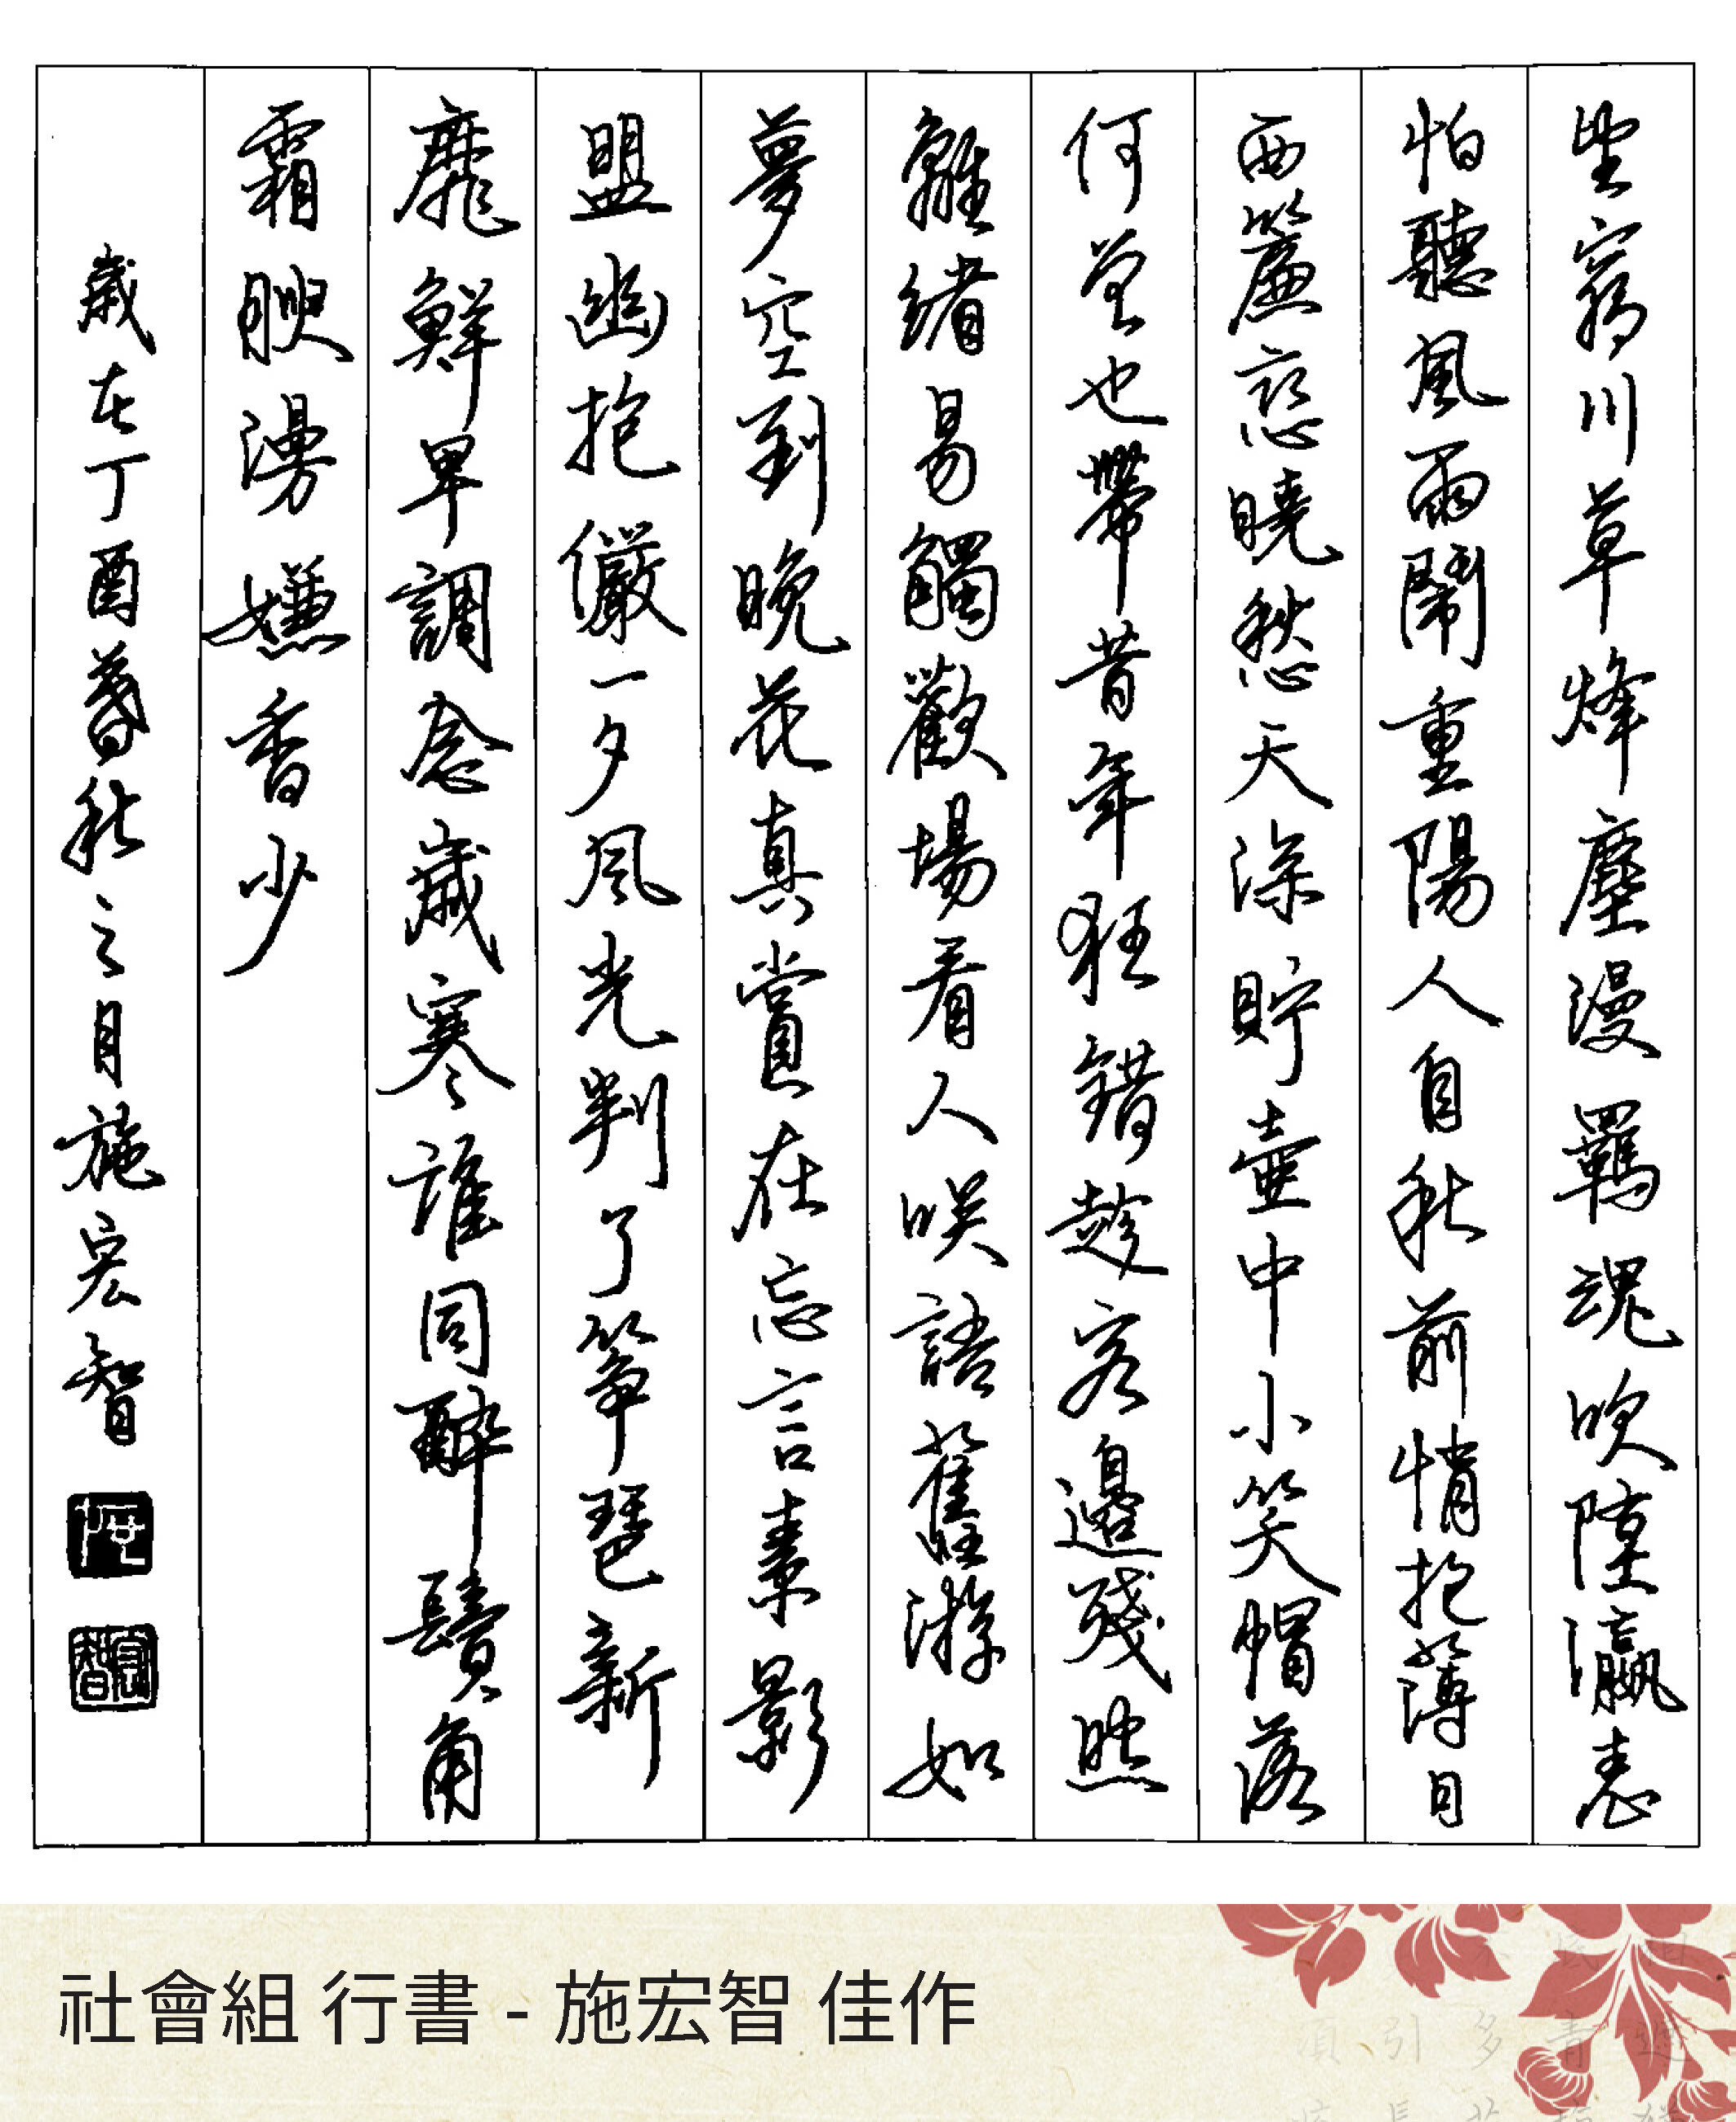 望窮川草烽塵漫羈魂吹墮瀛表
怕聽風雨鬧重陽人自秋前情抱薄日
西簾恋曉愁天深貯壺中小笑帽落
何曾也帶昔年狂錯趁客邊殘照
離緒易觸歡場看人咲語舊游如
夢空到晚花真賞在忘言素影
盟幽抱儼一夕風光判了箏琶新
靡鮮卑調念歲寒誰同醉鬢角
霜腴漫嫌香少
歲在丁酉暮秋之月施宏智
宏智
社會組 行書 - 施宏智 佳作